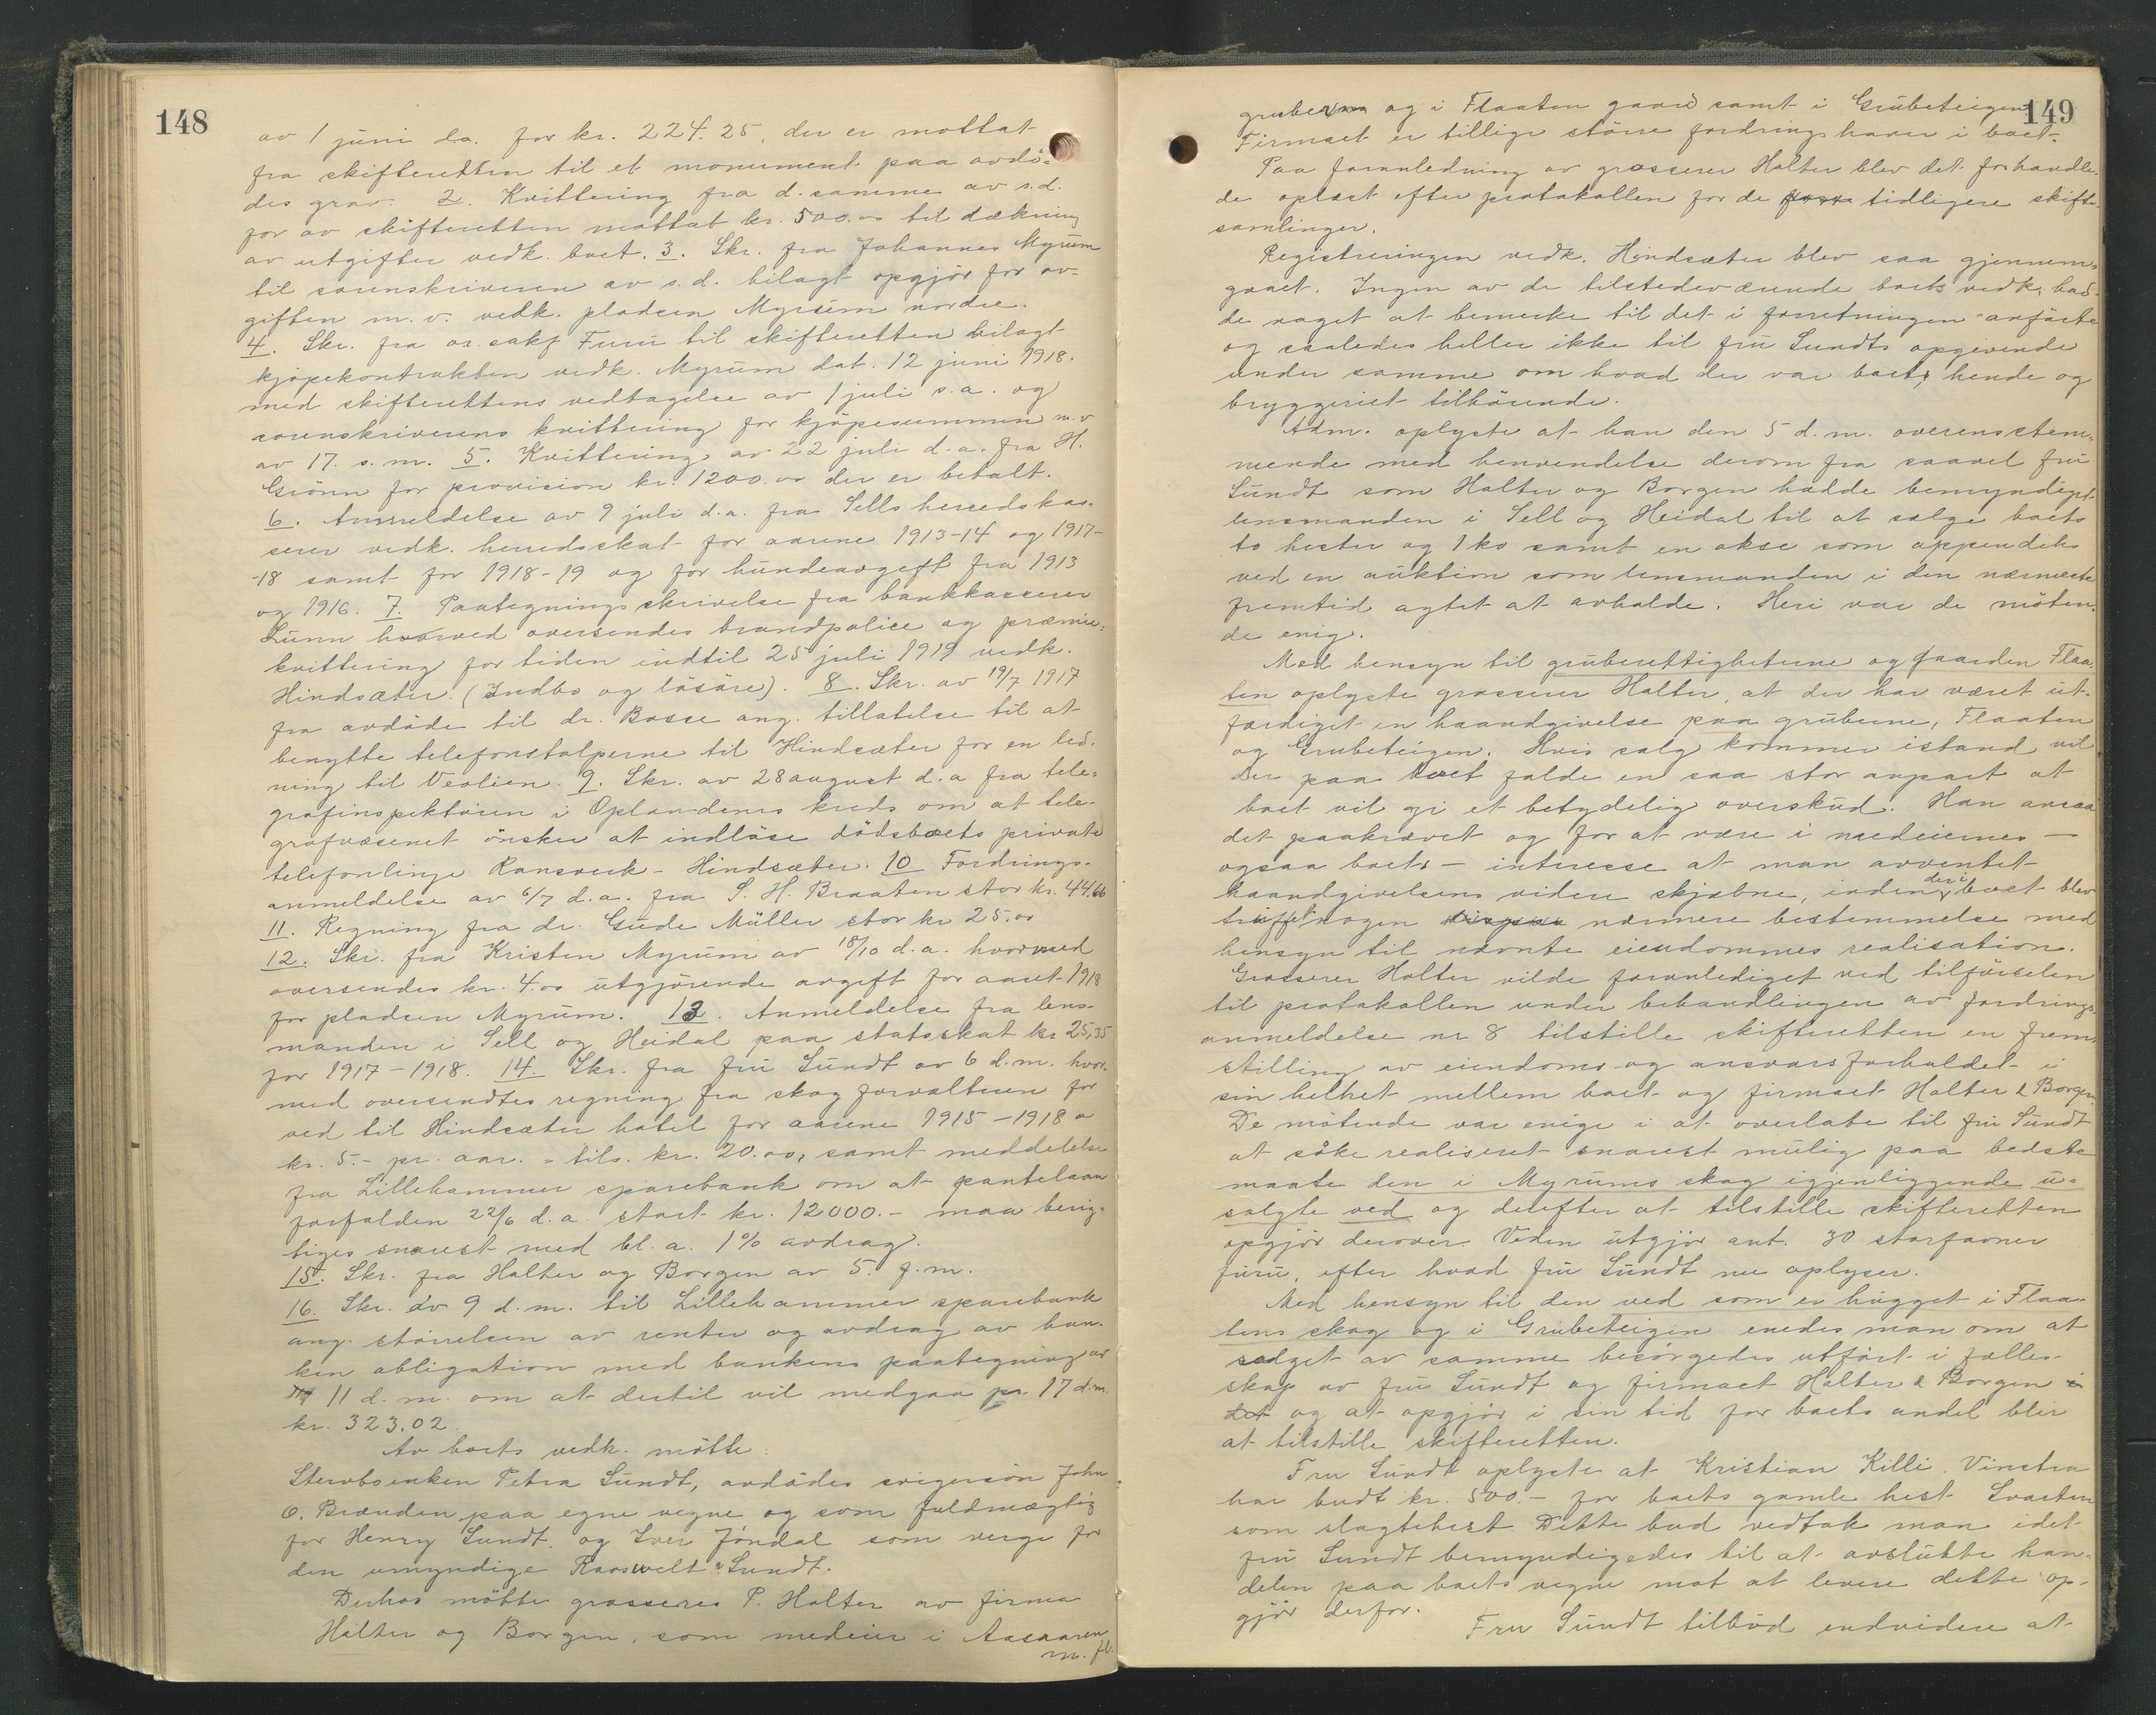 148
av 1 juni d.a. for kr. 224.25, der er mottat
fra skifteretten til et monument paa avdö=
des grav. 2. Kvittering fra d. samme av s.d.
for av skifteretten mottat kr. 500.00 til dækning
av utgifter vedk. boet. 3. Skr. fra Johannes Myrum
til sorenskriveren av s.d. bilagt opgjör for av=
giften m.v. vedk. pladsen Myrum nordre.
4. Skr. fra o.r. sakf Furu til skifteretten bilagt
kjöpekontrakten vedk. Myrum dat. 12 juni 1918.
med skifterettens vedtagelse av 1 juli s.a. og
sorenskriverens kvittering for kjöpesummen m.v
av 17. s.m. 5. Kvittering av 22 juli d.a. fra H.
Grönn for provision kr. 1200.00 der er betalt.
6. Anmeldelse av 9 juli d.a. fra Sells herredskas-
serer vedk. herredsskat for aarene 1913-14 og 1917-
-18 samt for 1918-19 og for hundeavgift fra 1913
og 1916. 7. Paategningsskrivelse fra bankkasserer
Lunn hvorved oversendes brandpolice og præmie=
kvittering for tiden indtil 25 juli 1919 vedk.
Hindsæter (Indbo og lösöre). 8. Skr. av 19/7 1917
fra avdöde til dr. Bosse ang. tillatelse til at
benytte telefonstolperne til Hindsæter for en led.
ning til Veolien. 9. Skr. av 28 august d.a fra tele=
grafinspektören i Oplandenes kreds om at tele-
grafvæsenet önsker at indlöse dödsboets private
telefonlinje Ransverk - Hindsæter. 10 Fordrings-
anmeldelse av 6/7 d.a. fra S. H. Braaten stor kr. 44.66
11. Regning fra dr. Gude Müller stor kr 25.00
12. Skr. fra Kristen Myrum av 18/10 d.a. hvormed
oversendes kr. 4.00 utgjörende avgift for aaret 1918
for pladsen Myrum. 13. Anmeldelse fra lens-
manden i Sell og Heidal paa statsskat kr 25,35
for 1917-1918. 14. Skr. fra fru Sundt av 6 d.m. hvor.
med oversendtes regning fra skogforvalteren for
ved til Hindsæter hotel for aarene 1915-1918 a
kr. 5.- pr. aar. = tils. kr. 20.00, samt meddelelse
fra Lillehammer sparebank om at pantelaan
forfalden 22/6 d.a. stort kr. 12000.- maa berig-
tiges snarest med bl.a. 1% avdrag.
15. Skr. fra Halter og Borgen av 5. f.m.
16. Skr. av 9 d.m. til Lillehammer sparebank
ang. störrelsen av renter og avdrag av ban-
ken obligation med bankens paategning av
11 d.m. om at dertil vil medgaa pr. 17 d.m.
kr. 323.02.
Av boets vedk. mötte:
Stervboenken Petra Sundt, avdödes svigersön John
O. Brænden paa egne vegne og som fuldmægtig
for Henry Sundt, og Iver Jöndal som verge for
den umyndige Rooswelt Sundt.
Derhos mötte grosserer P. Halter av firma
Halter og Borgen, som medeier i Aasaaren
m. fl.
149
gruber og i Flaaten gaard samt i Grubeteigen.
Firmaet er tillige större fordringshaver i boet.
Paa foranledning av grosserer Halter blev det forhandle-
de oplæst efter protokollen for de tidligere skifte-
samlinger.
Registreringen vedk. Hindsæter blev saa gjennem=
gaaet. Ingen av de tilstedeværende boets vedk. had-
de noget at bemerke til det i forretningen anförte
og saaledes heller ikke til fru Sundts opgivende
under samme om hvad der var boets, hende og
bryggeriet tilhörende.
Adm. oplyste at han den 5 d.m. overensstem=
mende med henvendelse derom fra saavel fru
Sundt som Halter og Borgen hadde bemyndiget
lensmanden i Sell og Heidal til at sælge boets
to hester og 1 ko samt en okse som oppendiks
ved en auktion som lensmanden i den nærmeste
fremtid agtet at avholde. Heri var de möten-
de enig.
Med hensyn til gruberettigheterne og gaarden Flaa-
ten oplyste grosserer Halter, at der har været ut-
færdiget en haandgivelse paa gruberne, Flaaten
og Grubeteigen. Hvis salg kommer istand vil
der paa boet falde en saa stor anpart at
boet vil gi et betydelig overskud. Han ansaa
det paakrævet og for at være i medeiernes —
ogsaa boets — interesse at man avventet
haandgivelsens videre skjæbne, inden der i boet blev
truffet nogen nærmere bestemmelse med
hensyn til nævnte eiendommes realisation.
Grosserer Halter vilde foranlediget ved tilförselen
til protokollen under behandlingen av fordrings-
anmeldelse nr 8 tilstille skifteretten en frem-
stilling av eiendoms og ansvarsforholdet i
sin helhet mellem boet og firmaet Halter & Borgen.
De mötende var enige i at overlate til fru Sundt
at söke realiseret snarest mulig paa bedste
maate den i Myrums skog igjenliggende u-
solgte ved og derefter at tilstille skifteretten
opgjör derover. Veden utgjör ant. 30 storfavner
furu, efter hvad fru Sundt nu oplyser.
Med hensyn til den ved som er hugget i Flaa-
tens skog og i Grubeteigen enedes man om at
salget av samme besörgedes utfört i fælles-
skap av fru Sundt og firmaet Halter & Borgen
og at opgjör i sin tid for boets andel blir
at tilstille skifteretten.
Fru Sundt oplyste at Kristian Killi. Vinstra
har budt kr. 500.- for boets gamle hest Svarten
som slagtehest. Dette bud vedtok man idet
fru Sundt bemyndigedes til at avslutte han-
delen paa boets vegne mot at levere dette op-
gjör derfor.
Fru Sundt tilböd endvidere at